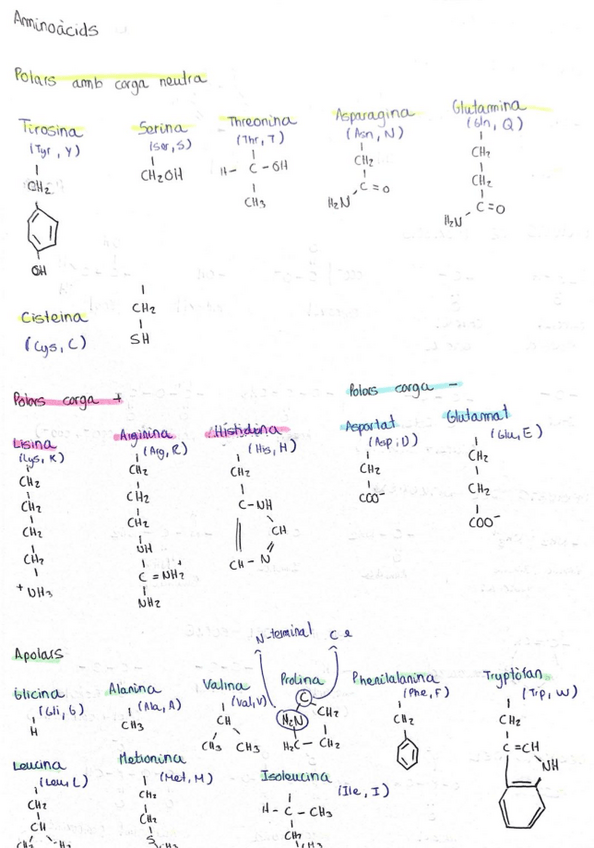 Aminoàcids
Polars amb carga neutra
Tirosina
(Tyr, Y)
CH₂
OH
Serina
(Ser, S)
CH₂OH
Threonina
(Thr, T)
H - C - OH
CH₃
Asparagina
(Asn, N)
CH₂
C = O
H₂N
Glutamina
(Gln, Q)
CH₂
CH₂
C = O
H₂N
Cisteina
(Cys, C)
CH₂
SH
Polars carga +
Lisina
(Lys, K)
CH₂
CH₂
CH₂
CH₂
+ NH₃
Arginina
(Arg, R)
CH₂
CH₂
CH₂
NH
C = NH₂⁺
NH₂
Histidina
(His, H)
CH₂
C - NH
CH
CH - N
Polars carga -
Aspartat
(Asp, D)
CH₂
COO⁻
Glutamat
(Glu, E)
CH₂
CH₂
COO⁻
Apolars
Glicina
(Gli, G)
H
Alanina
(Ala, A)
CH₃
Valina
(Val, V)
CH
CH₃ CH₃
N-terminal
Prolina
C
H₂N
CH₂
H₂C - CH₂
Phenilalanina
(Phe, F)
CH₂
Tryptofan
(Trp, W)
CH₂
C = CH
NH
Leucina
(Leu, L)
CH₂
CH
Metionina
(Met, M)
CH₂
CH₂
S
CH₃
Isoleucina
(Ile, I)
H - C - CH₃
CH₂
CH₃